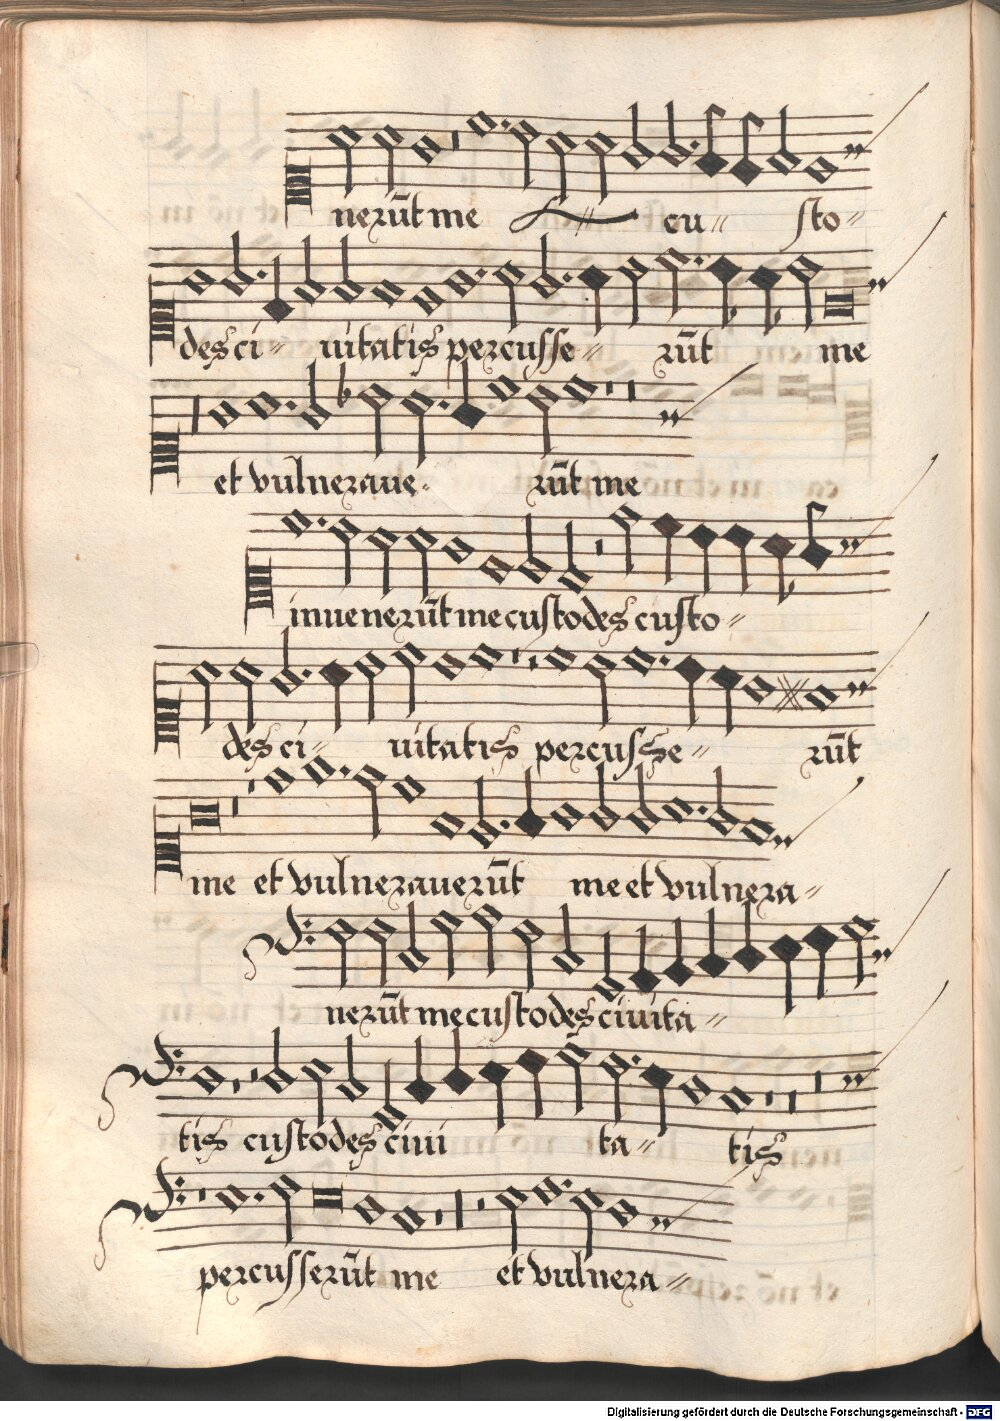 nerūt me cu〃 sto〃
des ci〃 uitatis percusse〃 rūt me
et vulneraue〃 rūt me
inuenerūt me custodes custo〃
des ci〃 uitatis percusse〃 rūt
me et vulnerauerūt me et vulnera〃
nerūt me custodes ciuita〃
tis custodes ciui ta〃 tis
percusserūt me et vulnera〃
Digitalisierung gefördert durch die Deutsche Forschungsgemeinschaft - DFG